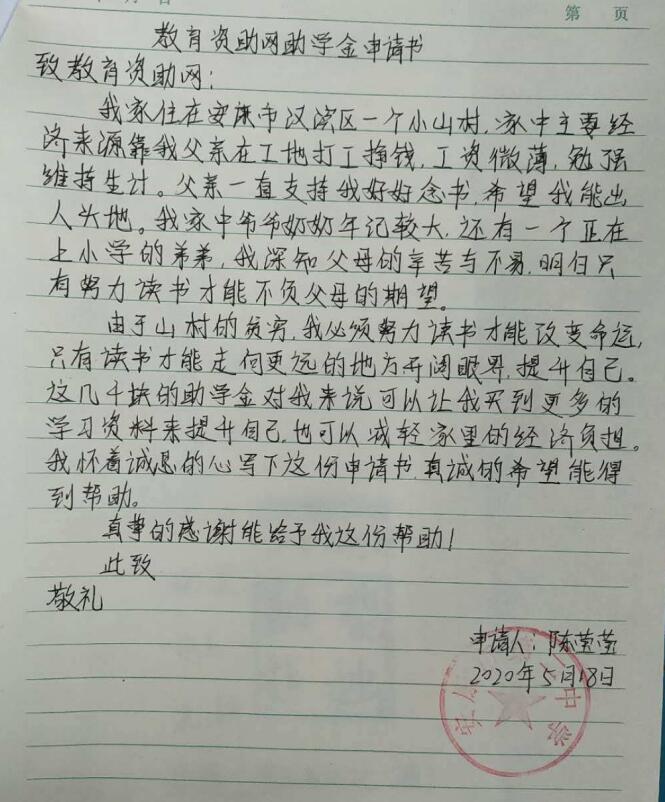 第 页
教育资助网助学金申请书
致教育资助网:
我家住在安康市汉滨区一个小山村,家中主要经
济来源靠我父亲在工地打工挣钱,工资微薄,勉强
维持生计。父亲一直支持我好好念书,希望我能出
人头地。我家中爷爷奶奶年记较大,还有一个正在
上小学的弟弟,我深知父母的辛苦与不易,明白只
有努力读书才能不负父母的期望。
由于山村的贫穷,我必须努力读书才能改变命运,
只有读书才能走向更远的地方开阔眼界,提升自己。
这几千块的助学金对我来说可以让我买到更多的
学习资料来提升自己,也可以减轻家里的经济负担。
我怀着诚恳的心写下这份申请书,真诚的希望能得
到帮助。
真挚的感谢能给予我这份帮助!
此致
敬礼
申请人:陈莹莹
2020年5月18日
安 中学